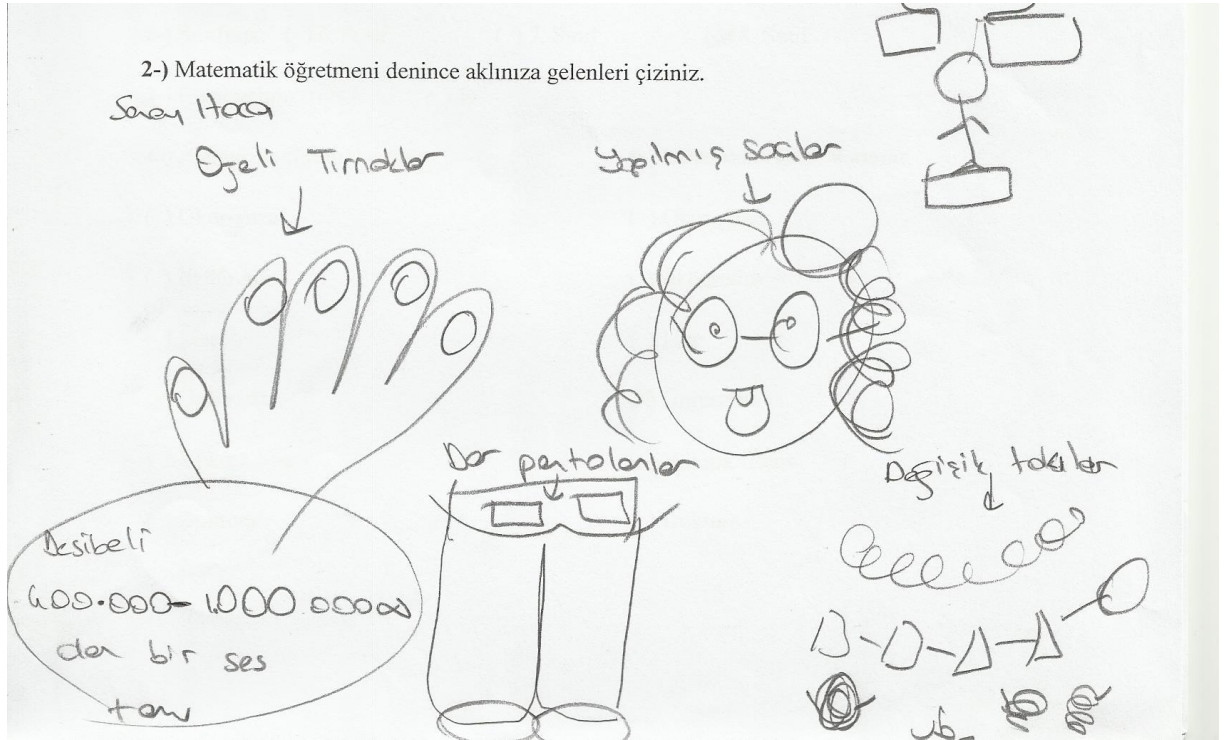 2-) Matematik öğretmeni denince aklınıza gelenleri çiziniz.
Hoca
Ojeli Tırnaklar
Yapılmış saçlar
Dar pantolonlar
Değişik takılar
Desibeli
400.000-1.000.0000
dan bir ses
tonu
vb.